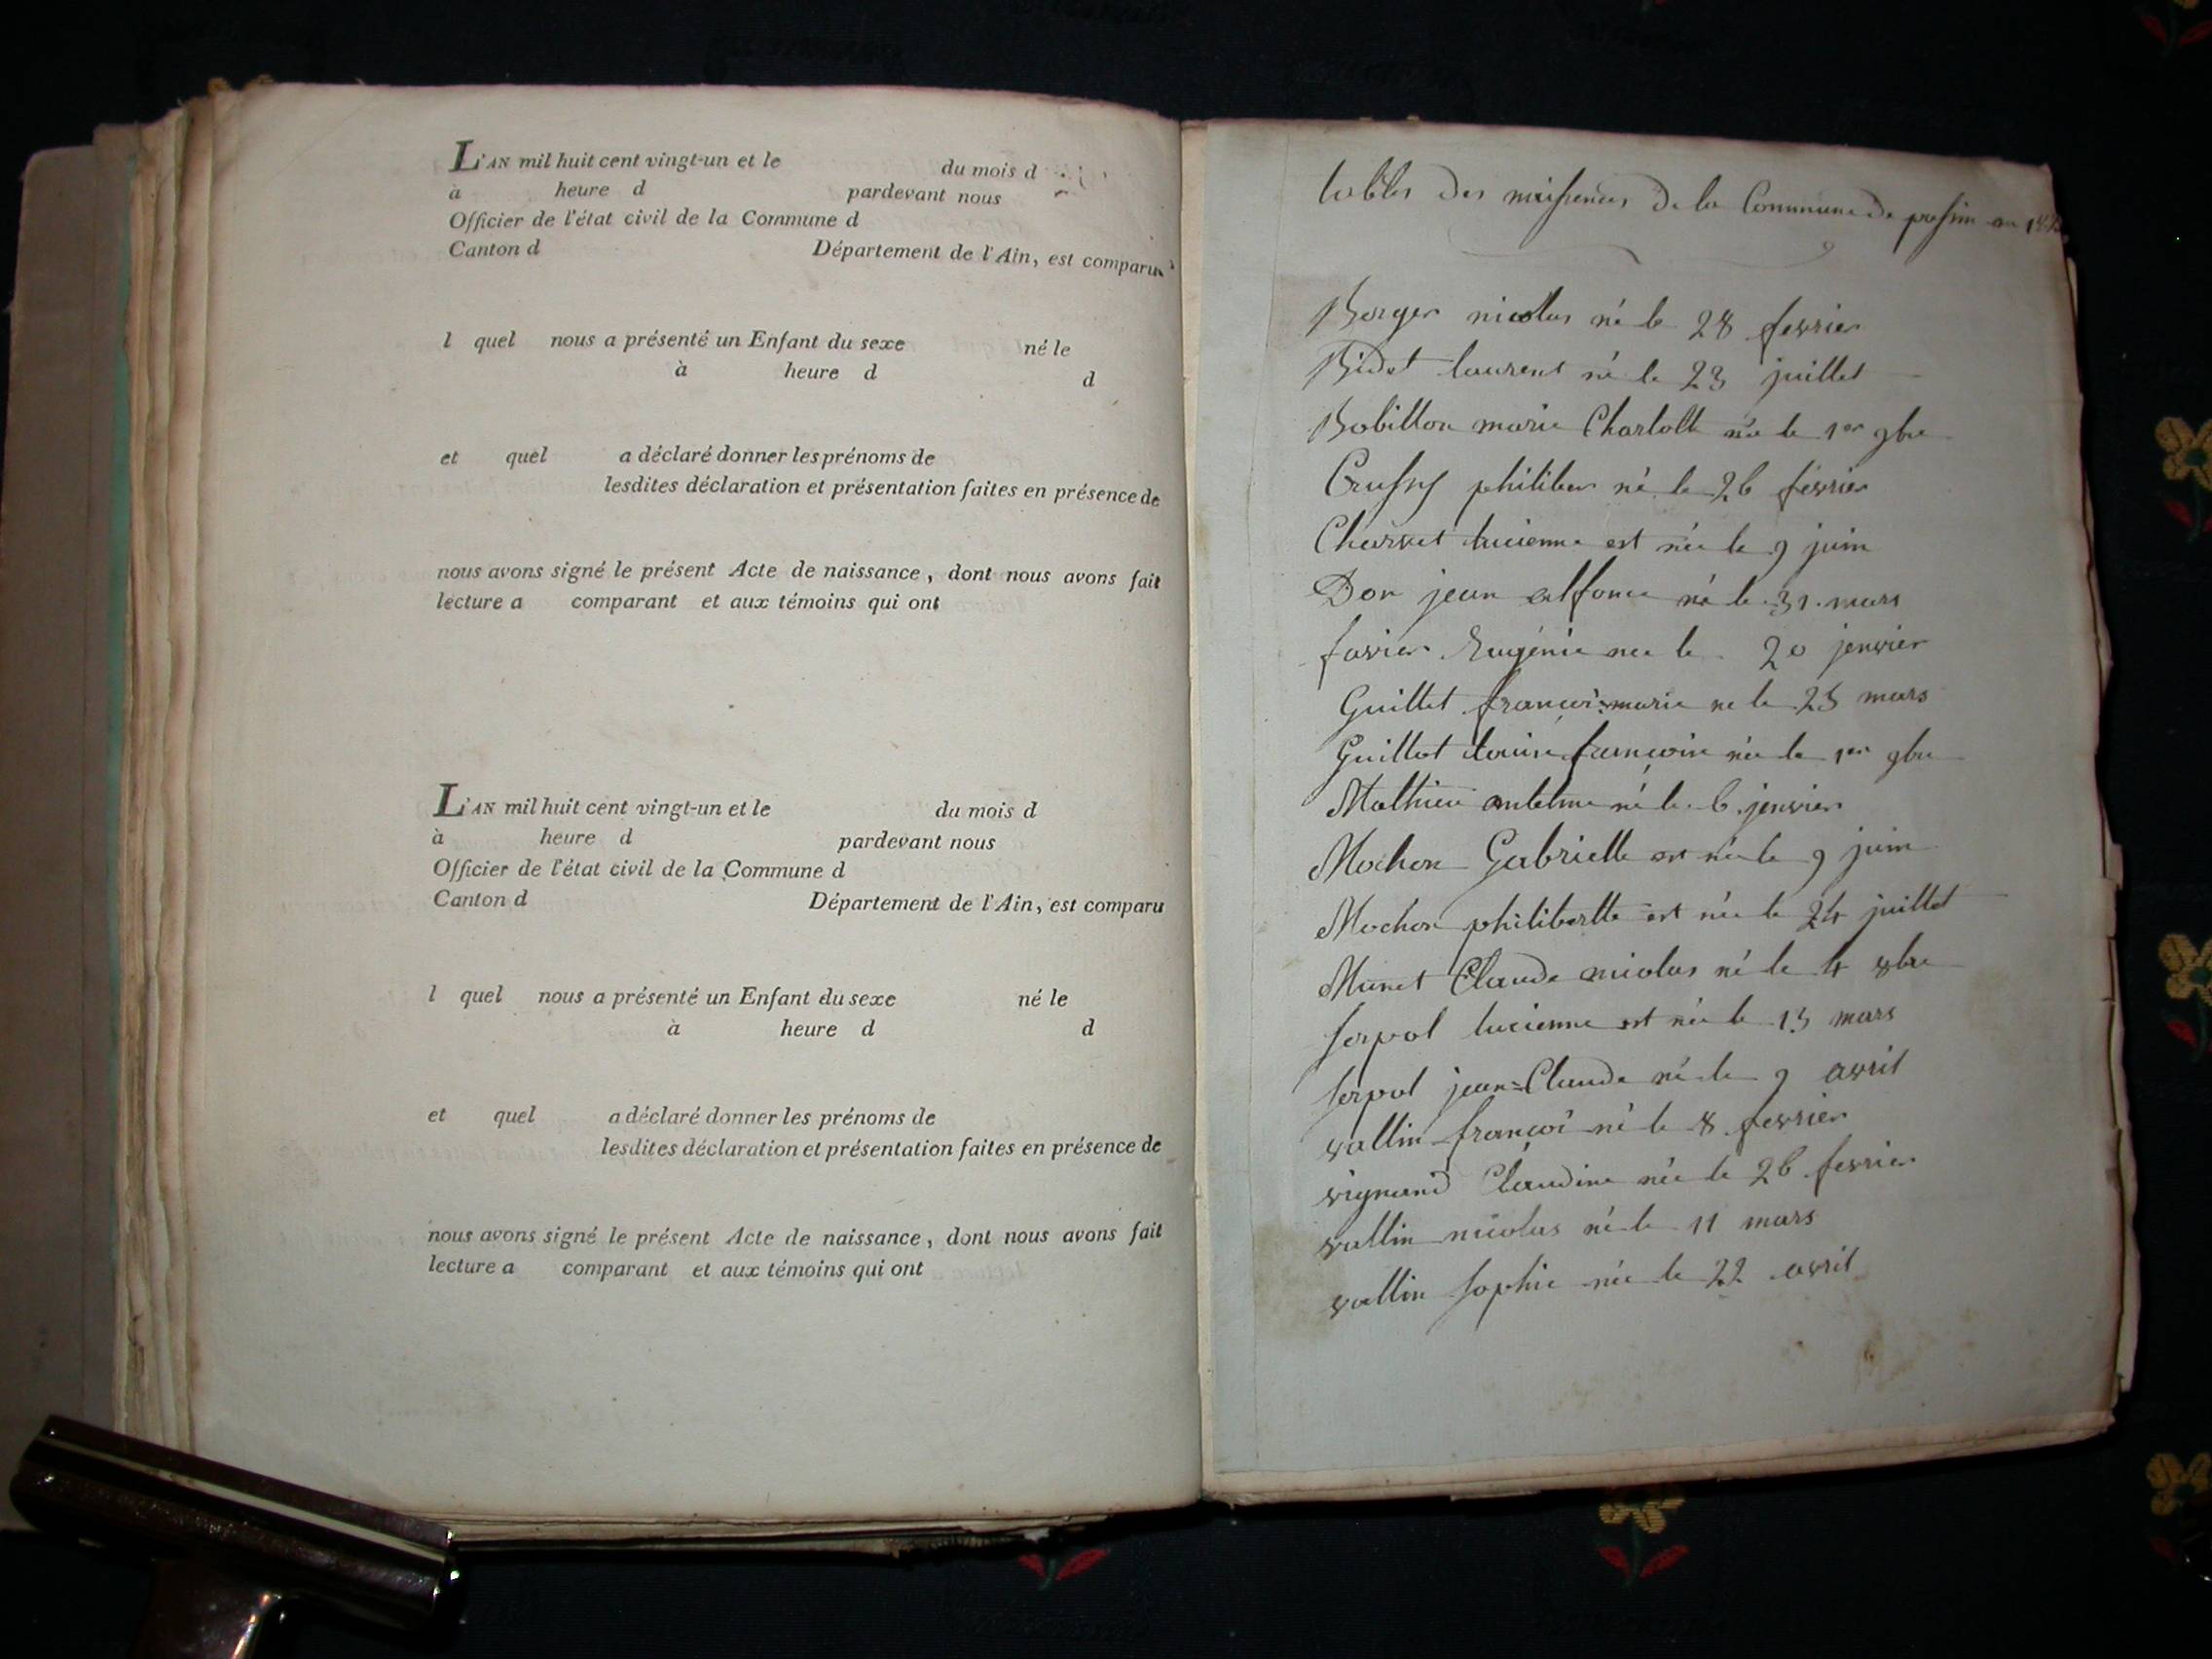 L'AN mil huit cent vingt-un et le du mois d
à heure d pardevant nous
Officier de l'état civil de la Commune d
Canton d Département de l'Ain, est comparu
l quel nous a présenté un Enfant du sexe né le
à heure d d
et quel a déclaré donner les prénoms de
lesdites déclaration et présentation faites en présence de
nous avons signé le présent Acte de naissance, dont nous avons fait
lecture a comparant et aux témoins qui ont
L'AN mil huit cent vingt-un et le du mois d
à heure d pardevant nous
Officier de l'état civil de la Commune d
Canton d Département de l'Ain, est comparu
l quel nous a présenté un Enfant du sexe né le
à heure d d
et quel a déclaré donner les prénoms de
lesdites déclaration et présentation faites en présence de
nous avons signé le présent Acte de naissance, dont nous avons fait
lecture a comparant et aux témoins qui ont
tables des naissences de la Commune de passin en
Berger nicolas né le 28 fevrier
Bidet laurent né le 23 juillet
Bobillon marie Charlotte née le 1er 9bre
philiber né le 26 fevrier
Charvet lucienne est née le 9 juin
Don jean alfonce né le 31 mars
favier Eugénie née le 20 jenvier
Guillet françois marie ne le 25 mars
Guillot louise françoise née le 1er 9bre
Mathieu antelme né le 6 jenvier
Mochon Gabrielle est née le 9 juin
Mochon philibertte est née le 24 juillet
Munet Claude nicolas né le 4 8bre
serpol lucienne est née le 13 mars
serpol jean-Claude né le 9 avril
vallin françoi né le 8 fevrier
vignand Claudine née le 26 fevrier
vallin nicolas né le 11 mars
vallin sophie née le 22 avril